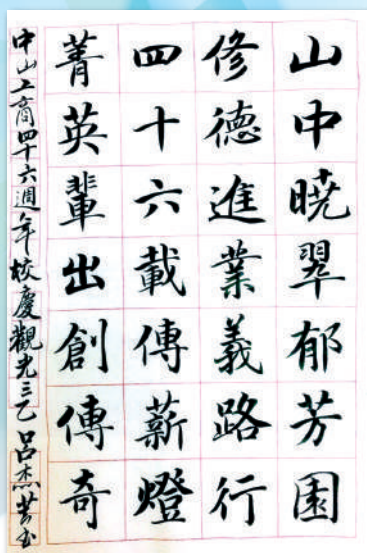 山中曉翠郁芳園
修德進業義路行
四十六載傳薪燈
菁英輩出創傳奇
中山工商四十六週年校慶觀光三乙呂杰